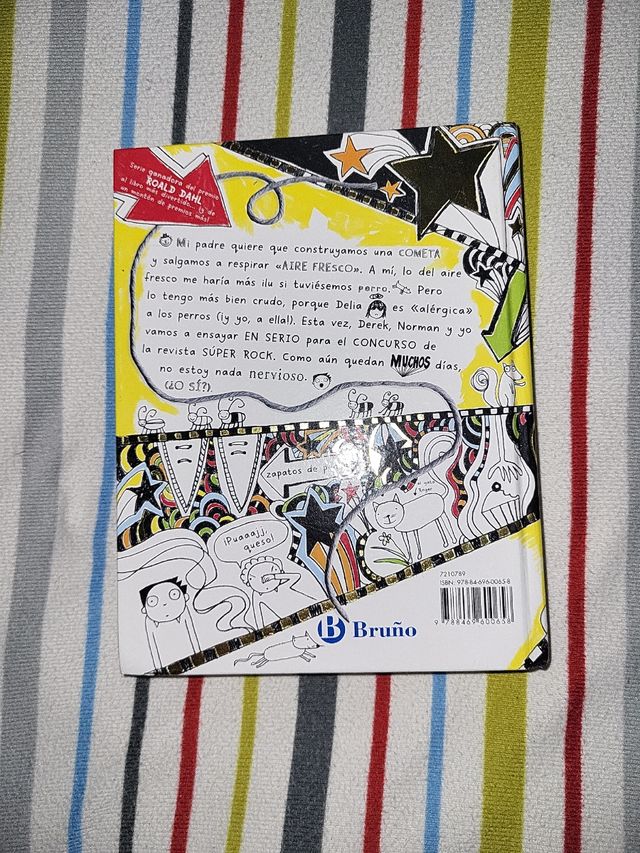 Serie ganadora del premio
ROALD DAHL
al libro más divertido... ¡y de
un montón de premios más!
Mi padre quiere que construyamos una COMETA
y salgamos a respirar «AIRE FRESCO». A mí, lo del aire
fresco me haría más ilu si tuviésemos perro. Pero
lo tengo más bien crudo, porque Delia es «alérgica»
a los perros (¡y yo, a ella!). Esta vez, Derek, Norman y yo
vamos a ensayar EN SERIO para el CONCURSO de
la revista SÚPER ROCK. Como aún quedan MUCHOS días,
no estoy nada nervioso.
(¿O SÍ?)
zapatos de
¡Puaaajj,
queso!
7210789
ISBN: 978-84-696-0065-8
9 788469 600658
B Bruño